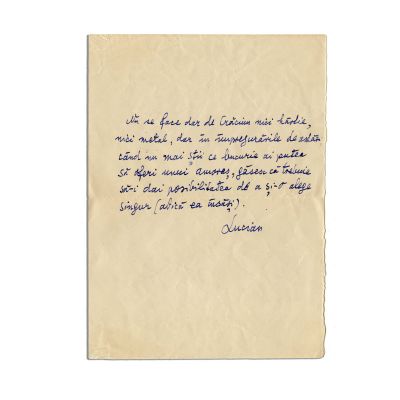 Nu se face dar de Crăciun nici hârtie,
nici metal, dar în împrejurările de astăzi
când nu mai știi ce bucurie ai putea
să oferi unei amorez, găsesc că trebuie
să-i dai posibilitatea de a și-o alege
singur (adică ea însăși).
Lucian